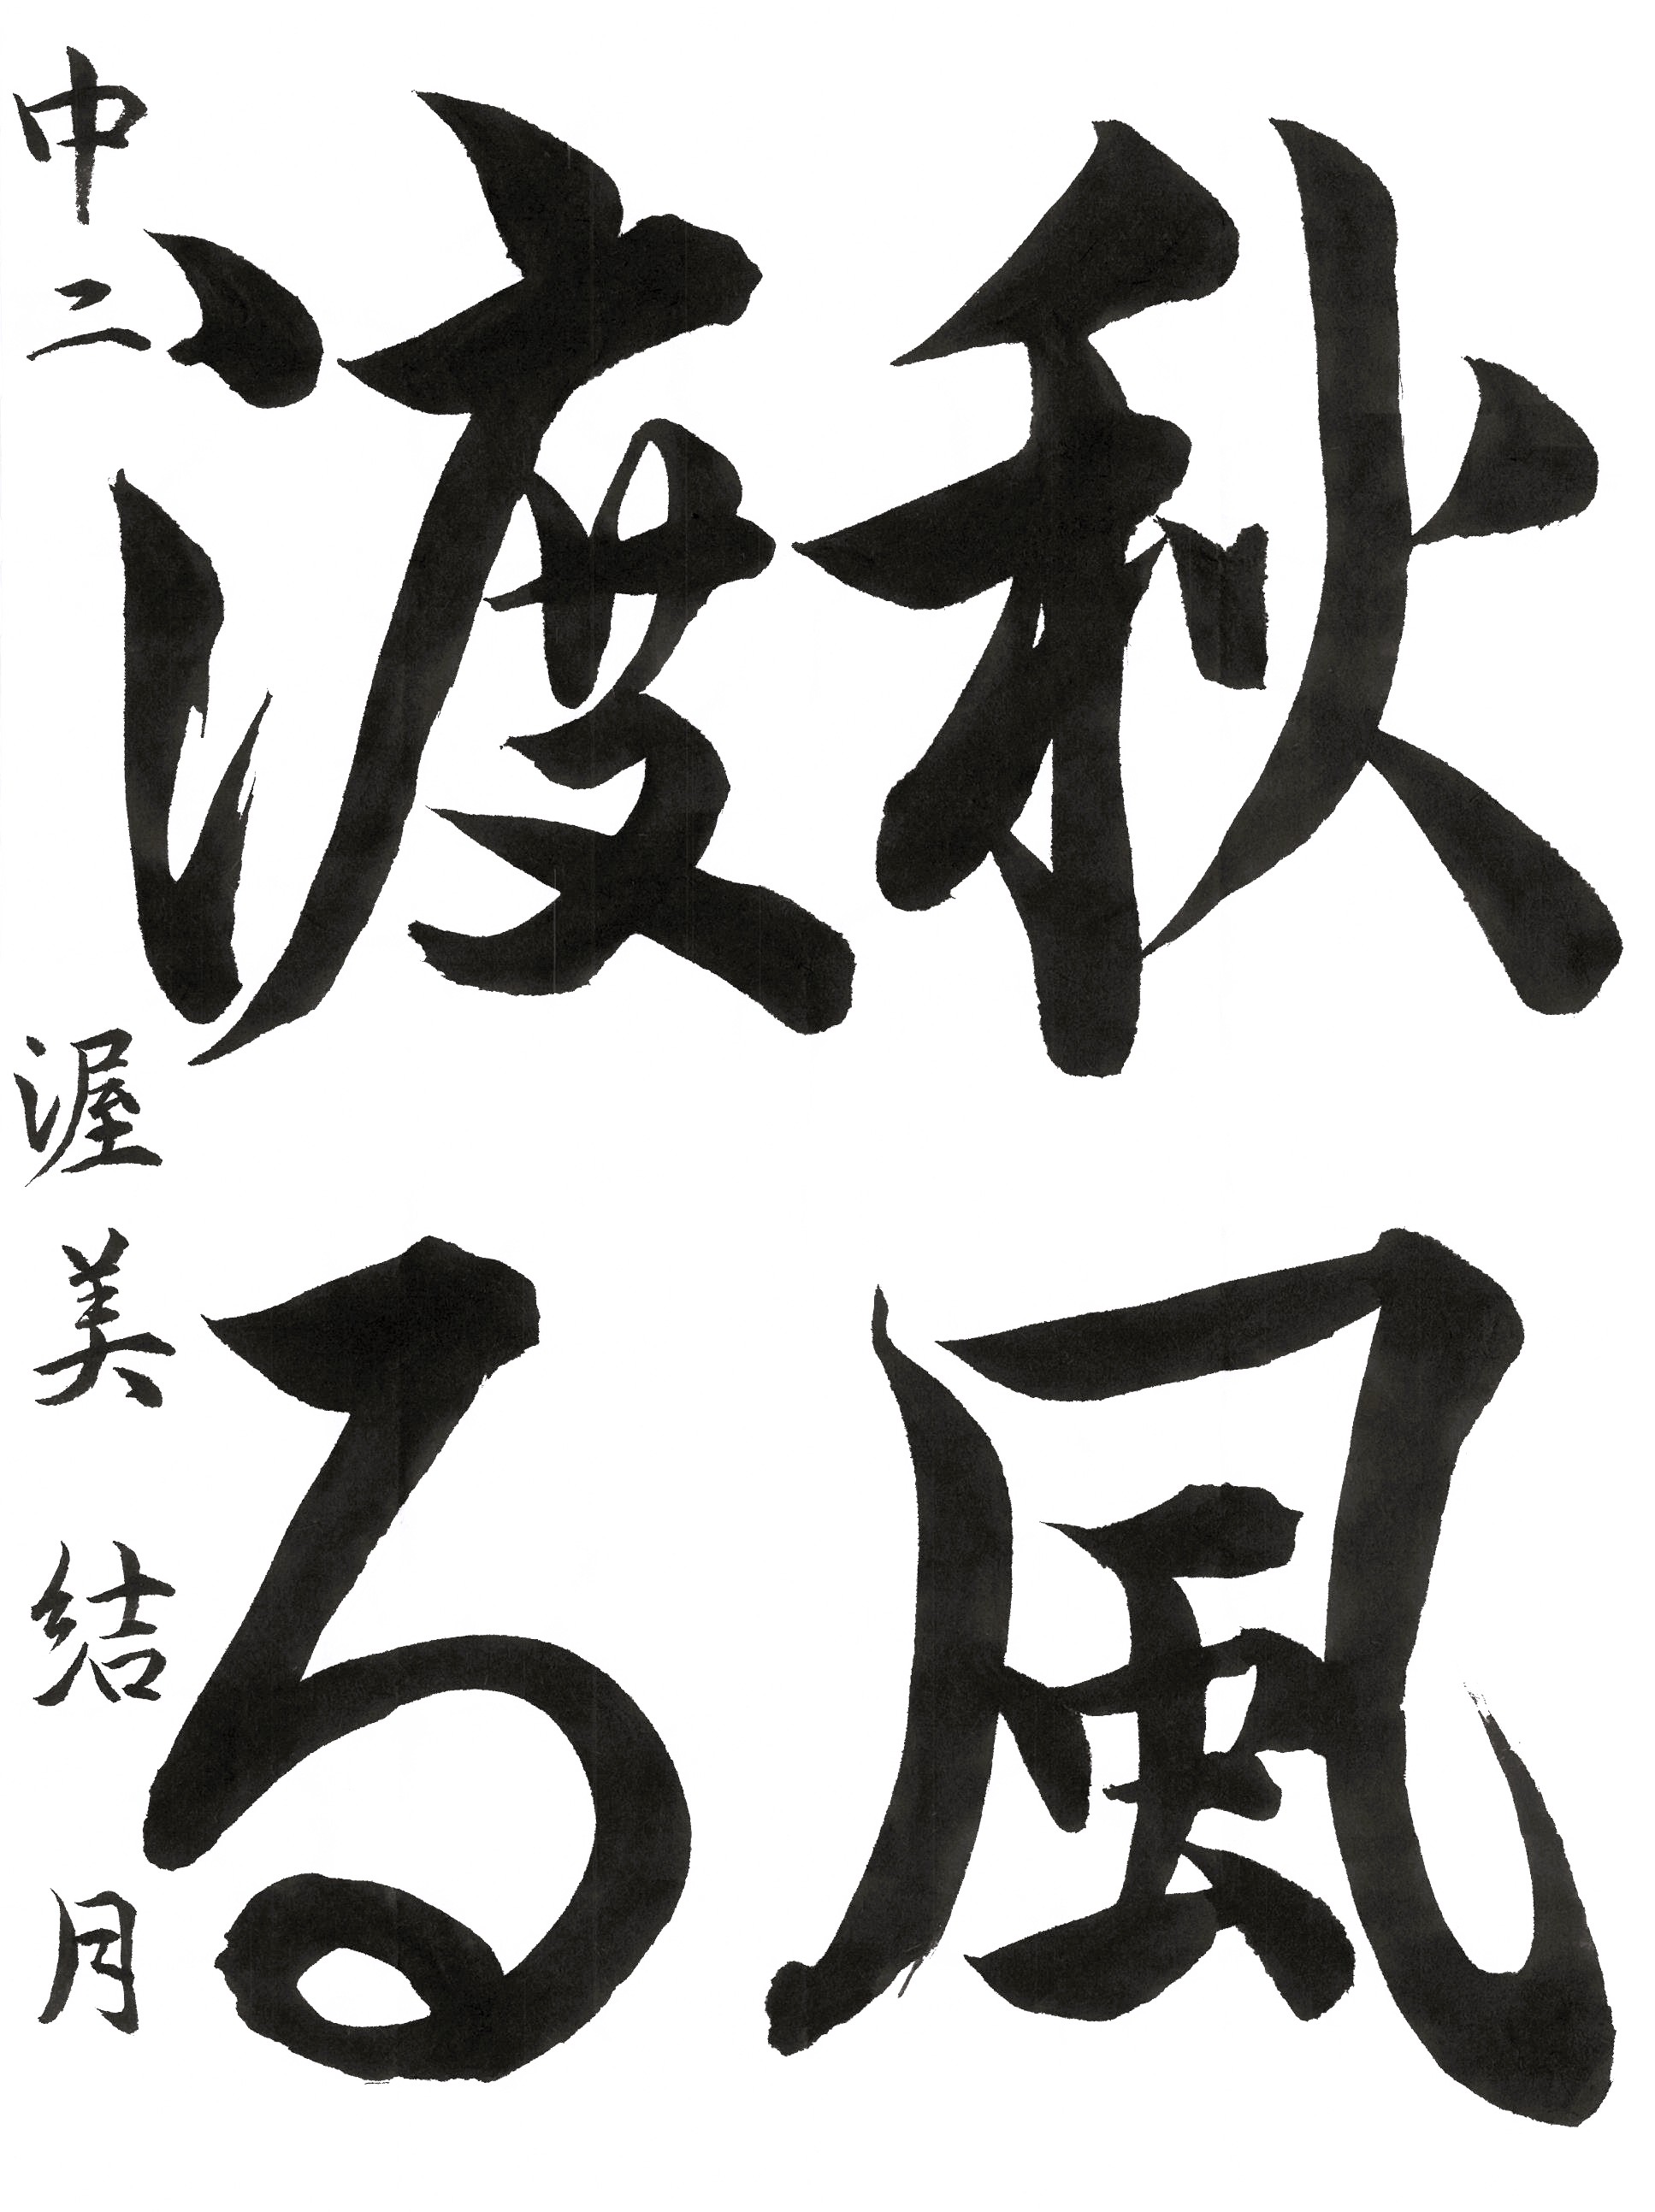 秋風
渡る
中二 渥美結月